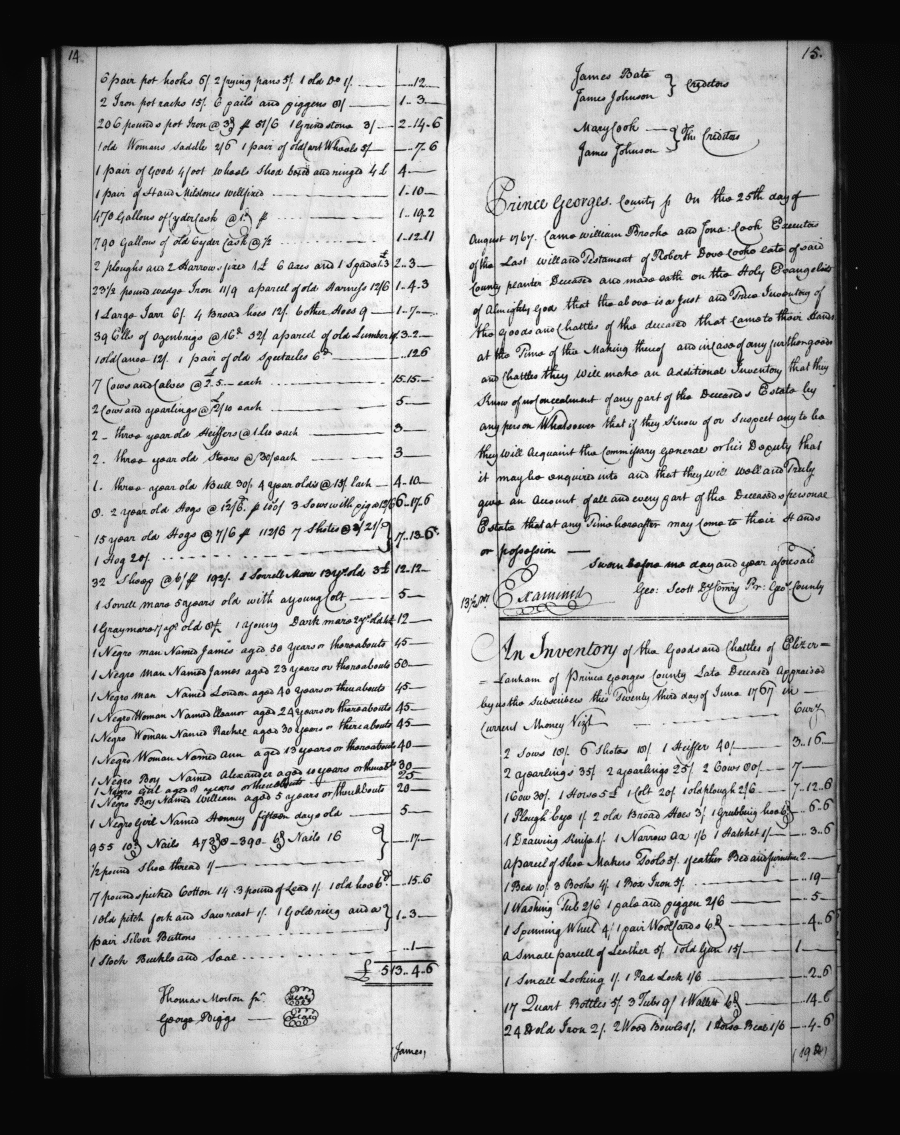 14.
6 pair pot hooks 6/. 2 frying pans 5/. 1 old Do 1/. ..12
2 Iron pot racks 15/. 6 pails and piggens 8/ 1..3
206 pounds pot Iron @ 3d 51/6 1 Grindstone 3/ 2..14..6
1 old Womans Saddle 2/6 1 pair of old Cart Wheels 5/ ..7..6
1 pair of Good 4 foot wheels Shod and ringed 4£ 4
1 pair of Hand Milstones well fixed 1..10
470 Gallons of Cyder Cask @ 1d 1..19..2
790 Gallons of old Cyder Cask @ ½ 1..12..11
2 ploughs and 2 Harrows fixed 1£ 6 Axes and 1 Spade 1£3 2..3
23½ pound wedge Iron 11/9 a parcel of old Harness 12/6 1..4..3
1 Large Jarr 6/. 4 Broad hoes 12/. 6 other Hoes 9 1..7
39 Ells of Oznbrigs @ 16d 52/ a parcel of old Lumber 3..2
1 old Canoe 12/. 1 pair of old Spectacles 6d ..12 6
7 Cows and Calves @ £2..5 each 15..15
2 Cows and yearlings @ £2/10 each 5
2 three year old Heiffers @ 1.£10 each 3
2. three year old Steers @ 30/ each 3
1. three year old Bull 30/. 4 year olds @ 15/. Each 4..10
8. 2 year old Hogs @ 12/6. 100/ 3 Sows with pig @ 12/6 6..17..6
15 year old Hogs @ 7/6 112/6 7 Shotes @ 3/ 21/ 7..13..6
1 Hog 20/.
32 Sheep @ 6/ 192/. 1 Sorrell Mare 13 yrs old 3£ 12..12
1 Sorrell mare 5 years old with a young Colt 5
1 Gray mare 7 yrs old 8£ 1 young Dark mare 2 yrs old 4£ 12
1 Negro man Named James aged 50 years or thereabouts 45
1 Negro Man Named James aged 23 years or thereabouts 50
1 Negro Man Named London aged 40 years or thereabouts 45
1 Negro Woman Named Eleanor aged 24 years or thereabouts 45
1 Negro Woman Named Rachel aged 30 years or thereabouts 45
1 Negro Woman Named Ann aged 13 years or thereabouts 40
1 Negro Boy Named Alexander aged 10 years or thereabts 30
1 Negro Girl aged 8 years or thereabouts 25
1 Negro Boy Named William aged 5 years or thereabouts 20
1 Negro Girl Named Henney fifteen days old 5
955 10d Nails 47 8d 390 6d Nails 16 ..17
½ pound Shoe thread 1/
7 pound picked Cotton 14 3 pound of Lead 1/. 1 old hoe 6d ..15..6
1 old pitch fork and Saw rest 1/. 1 Gold ring and a 1..3
pair Silver Buttons
1 Stock Buckle and Seal ..1
£ 513..4..6
Thomas Morton Jr. Seal
George Biggs Seal
James,
15.
James Bate
James Johnson } Creditors
Mary Cook
James Johnson } Thr Creditors
Prince Georges County ss On the 25th day of
August 1767. Came William Brooke and Jona: Cook Executors
of the Last Will and Testament of Robert Dove Cooke late of said
County planter Deceased and made oath on the Holy Evangelists
of Almighty God that the above is a Just and True Inventory of
the Goods and Chattles of the deceased that came to their Hands
at the Time of the Making thereof and in Case of any further goods
and Chattles they Will make an Additional Inventory that they
Know of no Concealment of any part of the Deceaseds Estate by
any person Whatsoever that if they Know of or Suspect any to be
they will Acquaint the Commissary General or his Deputy that
it may be enquired into and that they will well and Truly
give an Account of all and every part of the Deceaseds personal
Estate that at any Time hereafter may come to their Hands
or possession
Sworn before me day and year aforesaid
Examined Geo: Scott Dy Comry Pr: Geos. County
An Inventory of the Goods and Chattles of Elizer=
=Lanham of Prince Georges County Late Deceased Appraised
by us the Subscribers this Twenty third day of June 1767 in
Current Money Vizt Curry
2 Sows 18/. 6 Shotes 18/. 1 Heiffer 40/ 3..16
2 yearlings 35/. 2 yearlings 25/. 2 Cows 80/ 7
1 Cow 30/. 1 Horse 5£ 1 Colt 20/. 1 old plough 2/6 7..12..6
1 Plough Eye 1/. 2 old Broad Hoes 3/. 1 Grubbing hoe ..6..6
1 Drawing Knife 1/. 1 Narrow ax 1/6 1 Hatchet 1/ ..3..6
A parcel of Shoe Makers Tools 5/. 1 feather Bed and furniture 2
1 Bed 10/. 3 Books 4/. 1 Box Iron 5/. ..19
1 Washing Tub 2/6 1 pale and piggen 2/6 ..5
1 Spinning Wheel 4/. 1 pair Wool Cards 6d ..4..6
a Small parcell of Leather 5/. 1 old Gun 15/ 1
1 Small Looking 1/. 1 Pad Lock 1/6 ..2..6
17 Quart Bottles 5/. 3 Tubs 9/ 1 Wallet 6d ..14..6
24 # old Iron 2/. 2 Wood Bowls 1/. 1 1/6 ..4..6